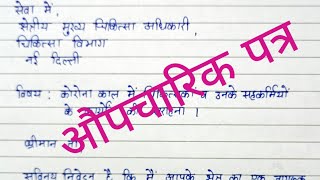 सेवा में,
क्षेत्रीय मुख्य चिकित्सा अधिकारी,
चिकित्सा विभाग
नई दिल्ली
विषय : कोरोना काल में चिकित्सकों व उनके सहकर्मियों
के की सराहना ।
श्रीमान
सविनय निवेदन है कि मैं आपके क्षेत्र का एक जागरूक
औपचारिक पत्र